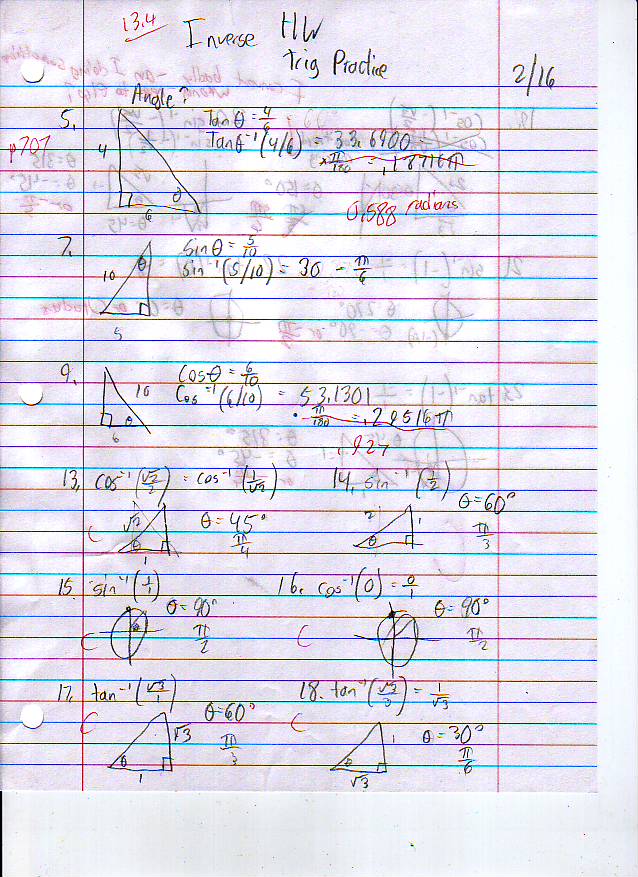 13.4
Inverse HW
Trig Practice
2/16
Angle?
p707
5. 4 6 θ Tanθ = 4/6
Tanθ⁻¹(4/6) = 33.6900 =
× π/180 = .18716π
0.588 radians
7. 10 5 θ sinθ = 5/10
sin⁻¹(5/10) = 30 - π/6
9. 10 6 θ Cosθ = 6/10
Cos⁻¹(6/10) = 53.1301
· π/180 = .29516π
.927
13. cos⁻¹(√2/2) = cos⁻¹(1/√2)
C √2 1 θ θ = 45° π/4
14. sin⁻¹(1/2)
2 1 θ θ = 60° π/3
15. sin⁻¹(1/1)
C θ θ = 90° π/2
16. cos⁻¹(0) = 0/1
C θ = 90° π/2
17. tan⁻¹(√3/1)
C √3 1 θ θ = 60° π/3
18. tan⁻¹(√3/3) = 1/√3
C 1 √3 θ θ = 30° π/6